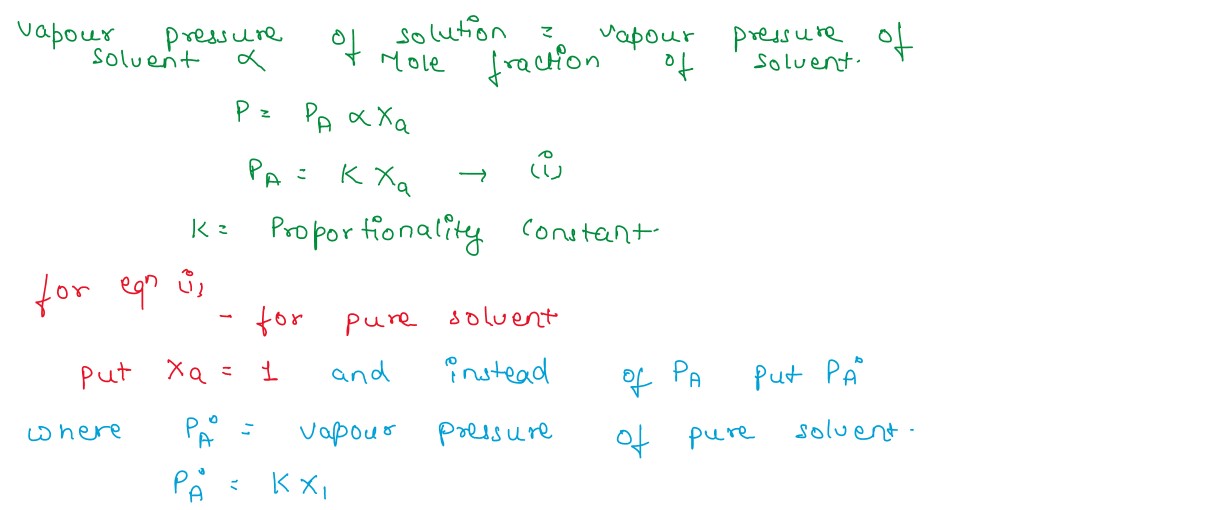 vapour pressure of solution = vapour pressure of
solvent ∝ Mole fraction of solvent.
P = P_A ∝ X_a
P_A = K X_a → (i)
K = Proportionality constant.
for eqn (i),
- for pure solvent
put X_a = 1 and instead of P_A put P_A°
where P_A° = vapour pressure of pure solvent.
P_A° = K X_1